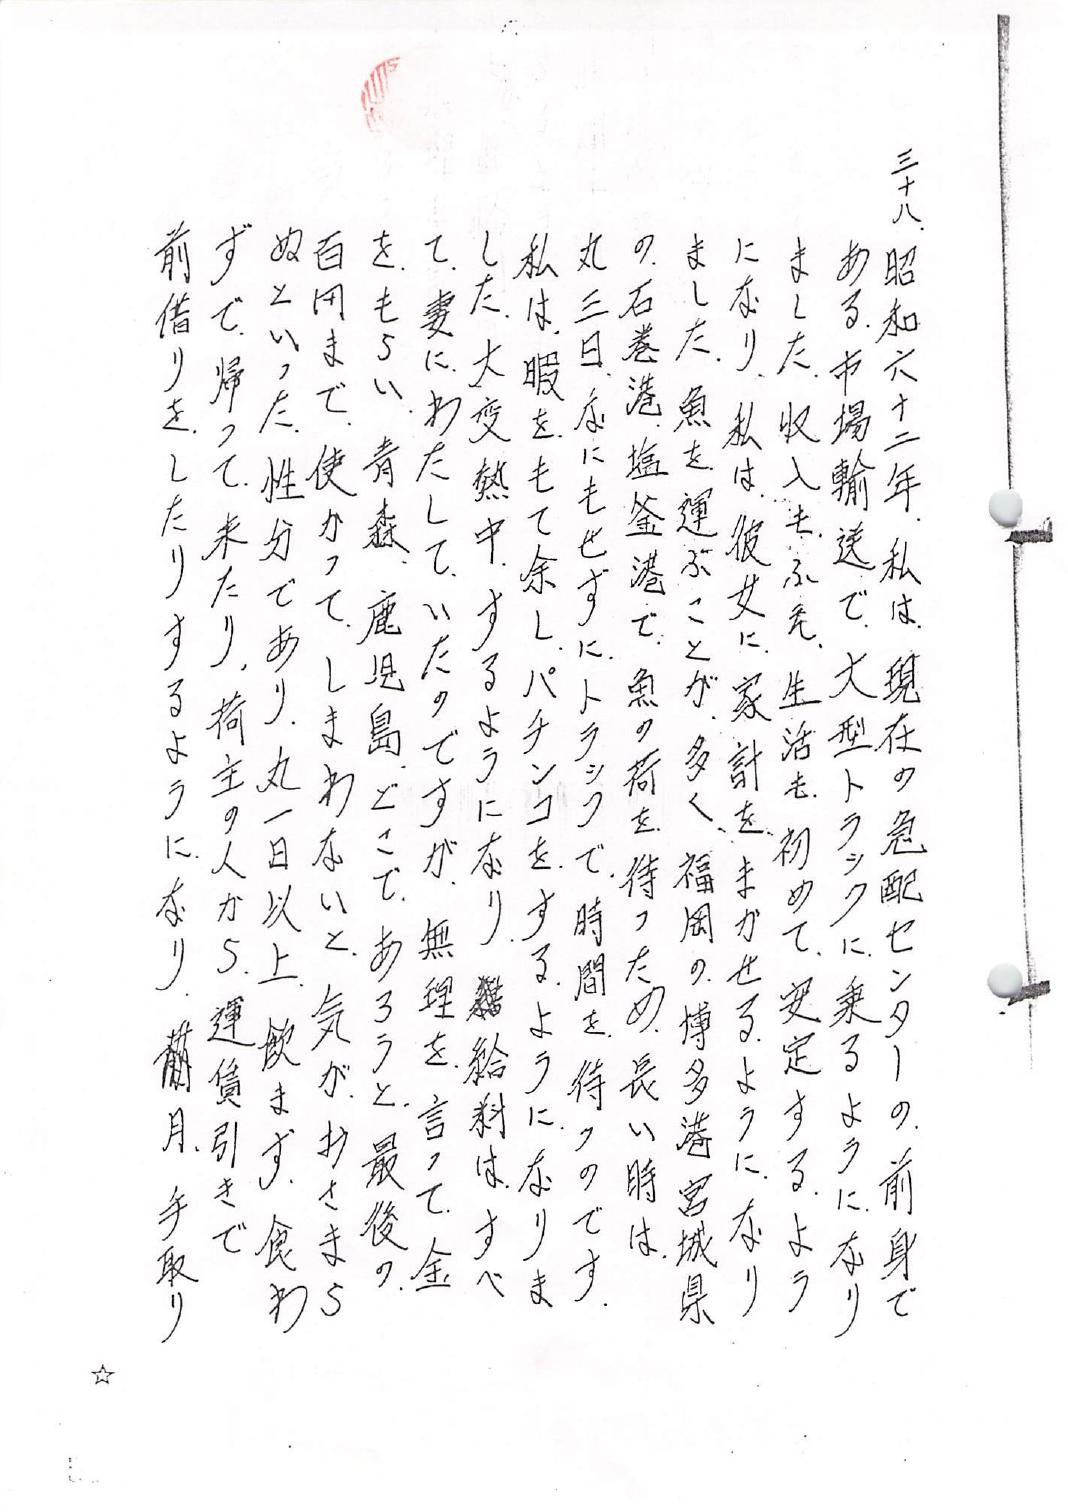 三十八、昭和六十二年、私は、現在の急配センターの、前身で
ある、市場輸送で、大型トラックに、乗るように、なり
ました、収入も、ふえ、生活も、初めて、安定する、よう
になり、私は、彼女に、家計を、まかせる、ように、なり
ました、魚を、運ぶことが、多く、福岡の、博多港、宮城県
の、石巻港、塩釜港で、魚の荷を、待つため、長い時は、
丸三日、なにもせずに、トラックで、時間を、待つのです、
私は、暇をもて余し、パチンコを、する、ように、なりま
した、大変熱中、するように、なり、給料は、すべ
て、妻に、わたして、いたのですが、無理を、言って、金
を、もらい、青森、鹿児島、どこで、あろうと、最後の、
百円まで、使かって、しまわないと、気が、おさまら
ぬといった、性分であり、丸一日以上、飲まず、食わ
ずで、帰って、来たり、荷主の人から、運賃引きで
前借りを、したりするように、なり、月、手取り
☆